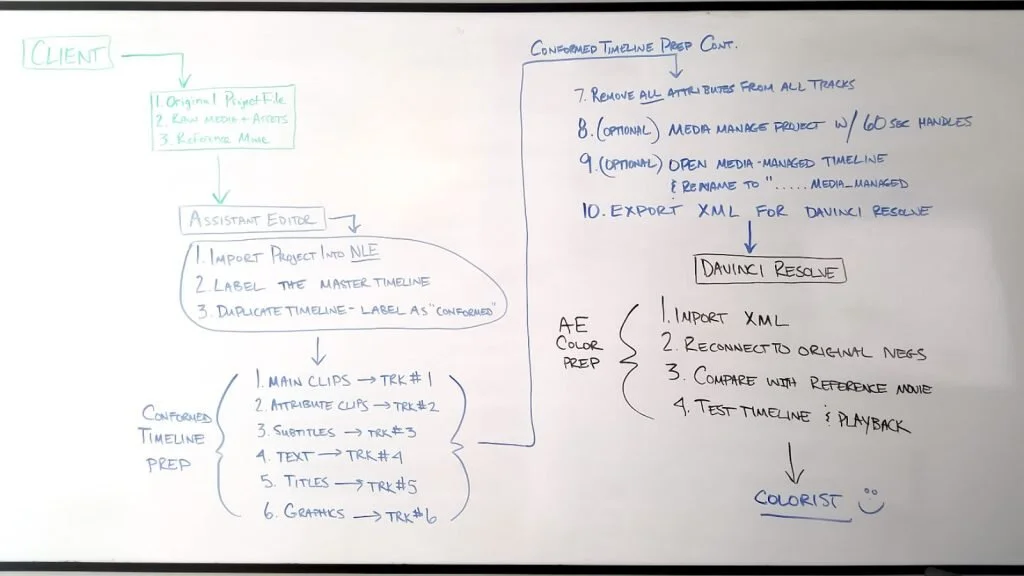 CLIENT
1. ORIGINAL PROJECT FILE
2. RAW MEDIA + ASSETS
3. REFERENCE MOVIE
ASSISTANT EDITOR
1. IMPORT PROJECT INTO NLE
2. LABEL THE MASTER TIMELINE
3. DUPLICATE TIMELINE - LABEL AS "CONFORMED"
CONFORMED
TIMELINE
PREP
1. MAIN CLIPS → TRK #1
2. ATTRIBUTE CLIPS → TRK #2
3. SUBTITLES → TRK #3
4. TEXT → TRK #4
5. TITLES → TRK #5
6. GRAPHICS → TRK #6
CONFORMED TIMELINE PREP CONT.
7. REMOVE ALL ATTRIBUTES FROM ALL TRACKS
8. (OPTIONAL) MEDIA MANAGE PROJECT W/ 60 SEC HANDLES
9. (OPTIONAL) OPEN MEDIA-MANAGED TIMELINE
& RENAME TO "..... MEDIA_MANAGED
10. EXPORT XML FOR DAVINCI RESOLVE
DAVINCI RESOLVE
AE
COLOR
PREP
1. IMPORT XML
2. RECONNECT TO ORIGINAL NEGS
3. COMPARE WITH REFERENCE MOVIE
4. TEST TIMELINE & PLAYBACK
COLORIST